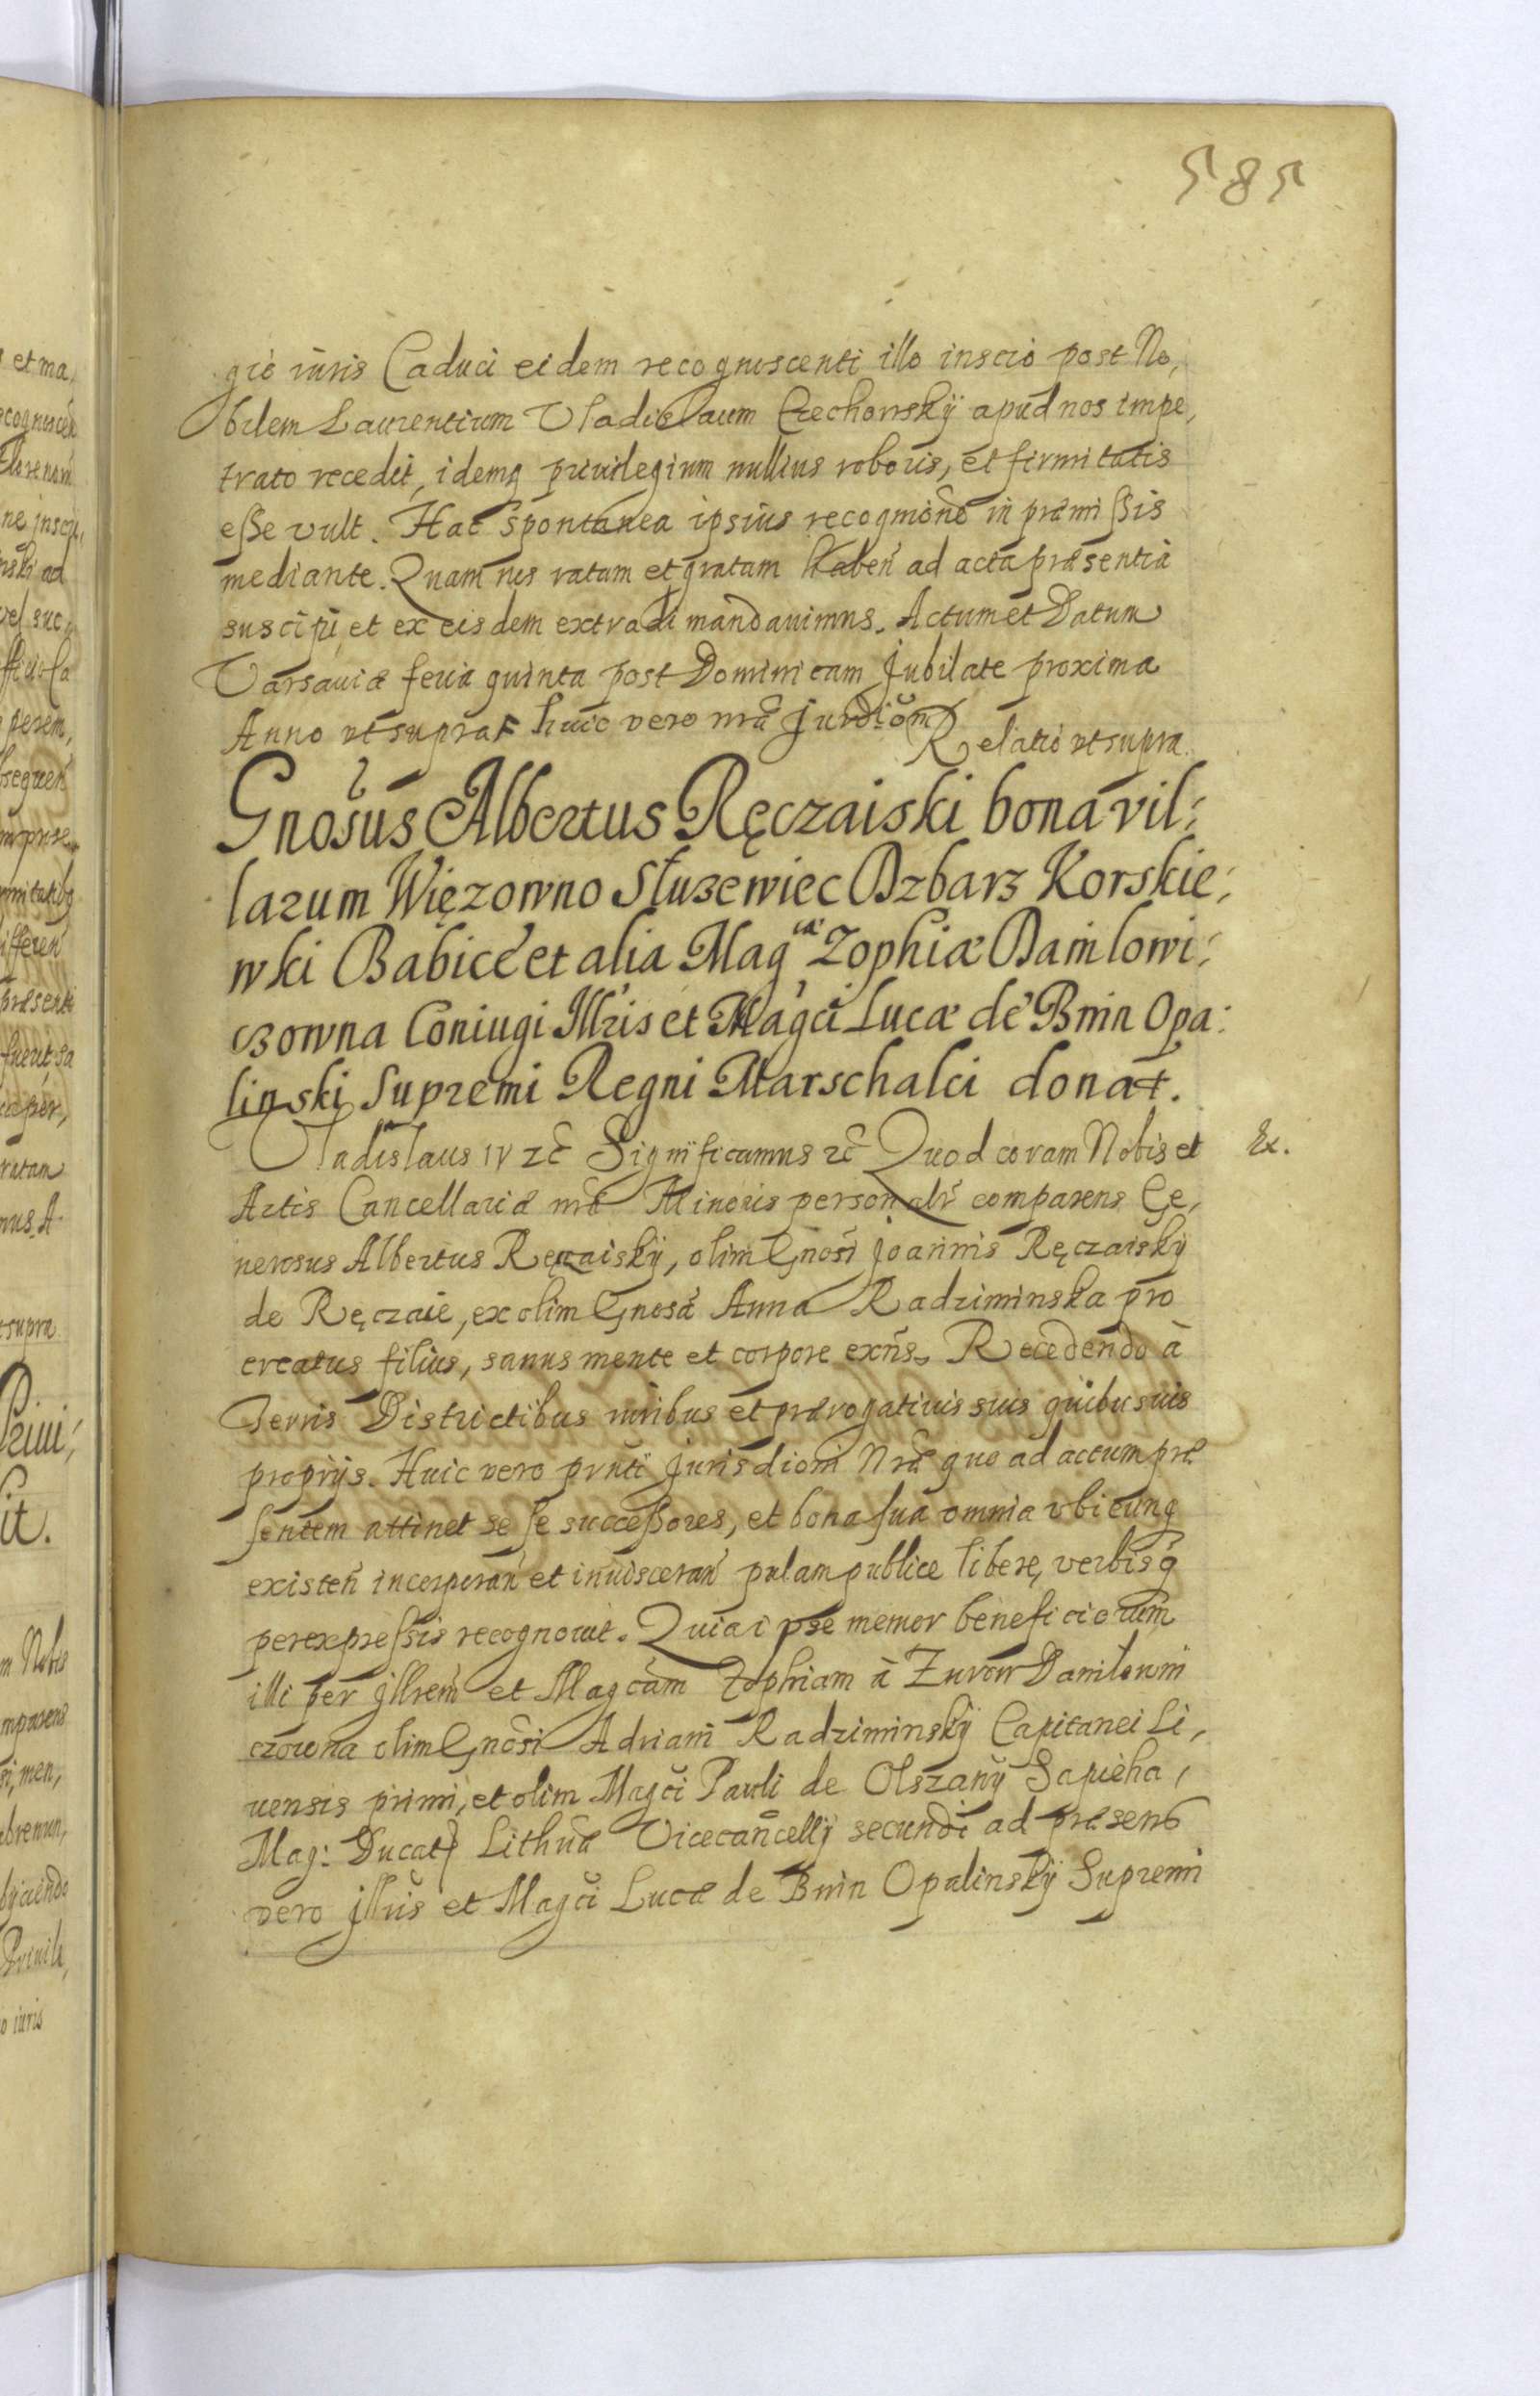 585
gio iuris Caduci eidem recognoscenti illo inscio post No,
bilem Laurentium Vladislaum Czechowskÿ apud nos impe,
trato recedit, idemq privilegium nullius roboris, et firmitatis
eße vult. Hac spontanea ipsius recognõne in præmißis
mediante. Quam nos ratam et gratam haben̄ ad acta præsentia
suscipi, et ex eisdem extradi mandauimus. Actum et Datum
Varsauiæ feria quinta post Dominicam Jubilate proxima
Anno vt supra huic vero nrã Jurdiōni
Relatio vt supra.
Gnosus Albertus Ręczaiski bona vil:
larum Więzowno Słuzewiec Dzbarz Korskie:
wki Babice et alia Mag^cæ Zophiæ Daniłowi:
czowna Coniugi Illris et Magci Lucæ de Bnin Opa:
linski Supremi Regni Marschalci donat.
Vladislaus IV zc̃ Significamus zc̃ Quod coram Nobis et
Ex.
Actis Cancellariæ nrã Minoris personalr comparens Ge,
nerosus Albertus Ręczaiskÿ, olim Gnosi Joannis Ręczaiskÿ
de Ręczaie, ex olim Gnosa Anna Radziminska pro
creatus filius, sanus mente et corpore exñs. Recedendo à
Terris Districtibus iuribus et prærogatiuis suis quibusuis
proprijs. Huic vero prñti Jurisdioni Nrã quo ad actum præ
sentem attinet se se succeßores, et bona sua omnia vbicunq
existen̄ incorporan̄ et inuisceran̄ palam publice libere, verbisq
perexpreßis recognouit. Quia ipse memor beneficiorum
illi per Jllrem et Magcam Zophiam à Zurow Danilowi
czowna olim Gnosi Adriani Radziminskÿ Capitanei Li,
uensis primi, et olim Magci Pauli de Olszanÿ Sapieha,
Mag: Ducatq Lithuã Vicecancellÿ secundi ad præsens
vero Jllris et Magci Lucæ de Bnin Opalinskÿ Supremi